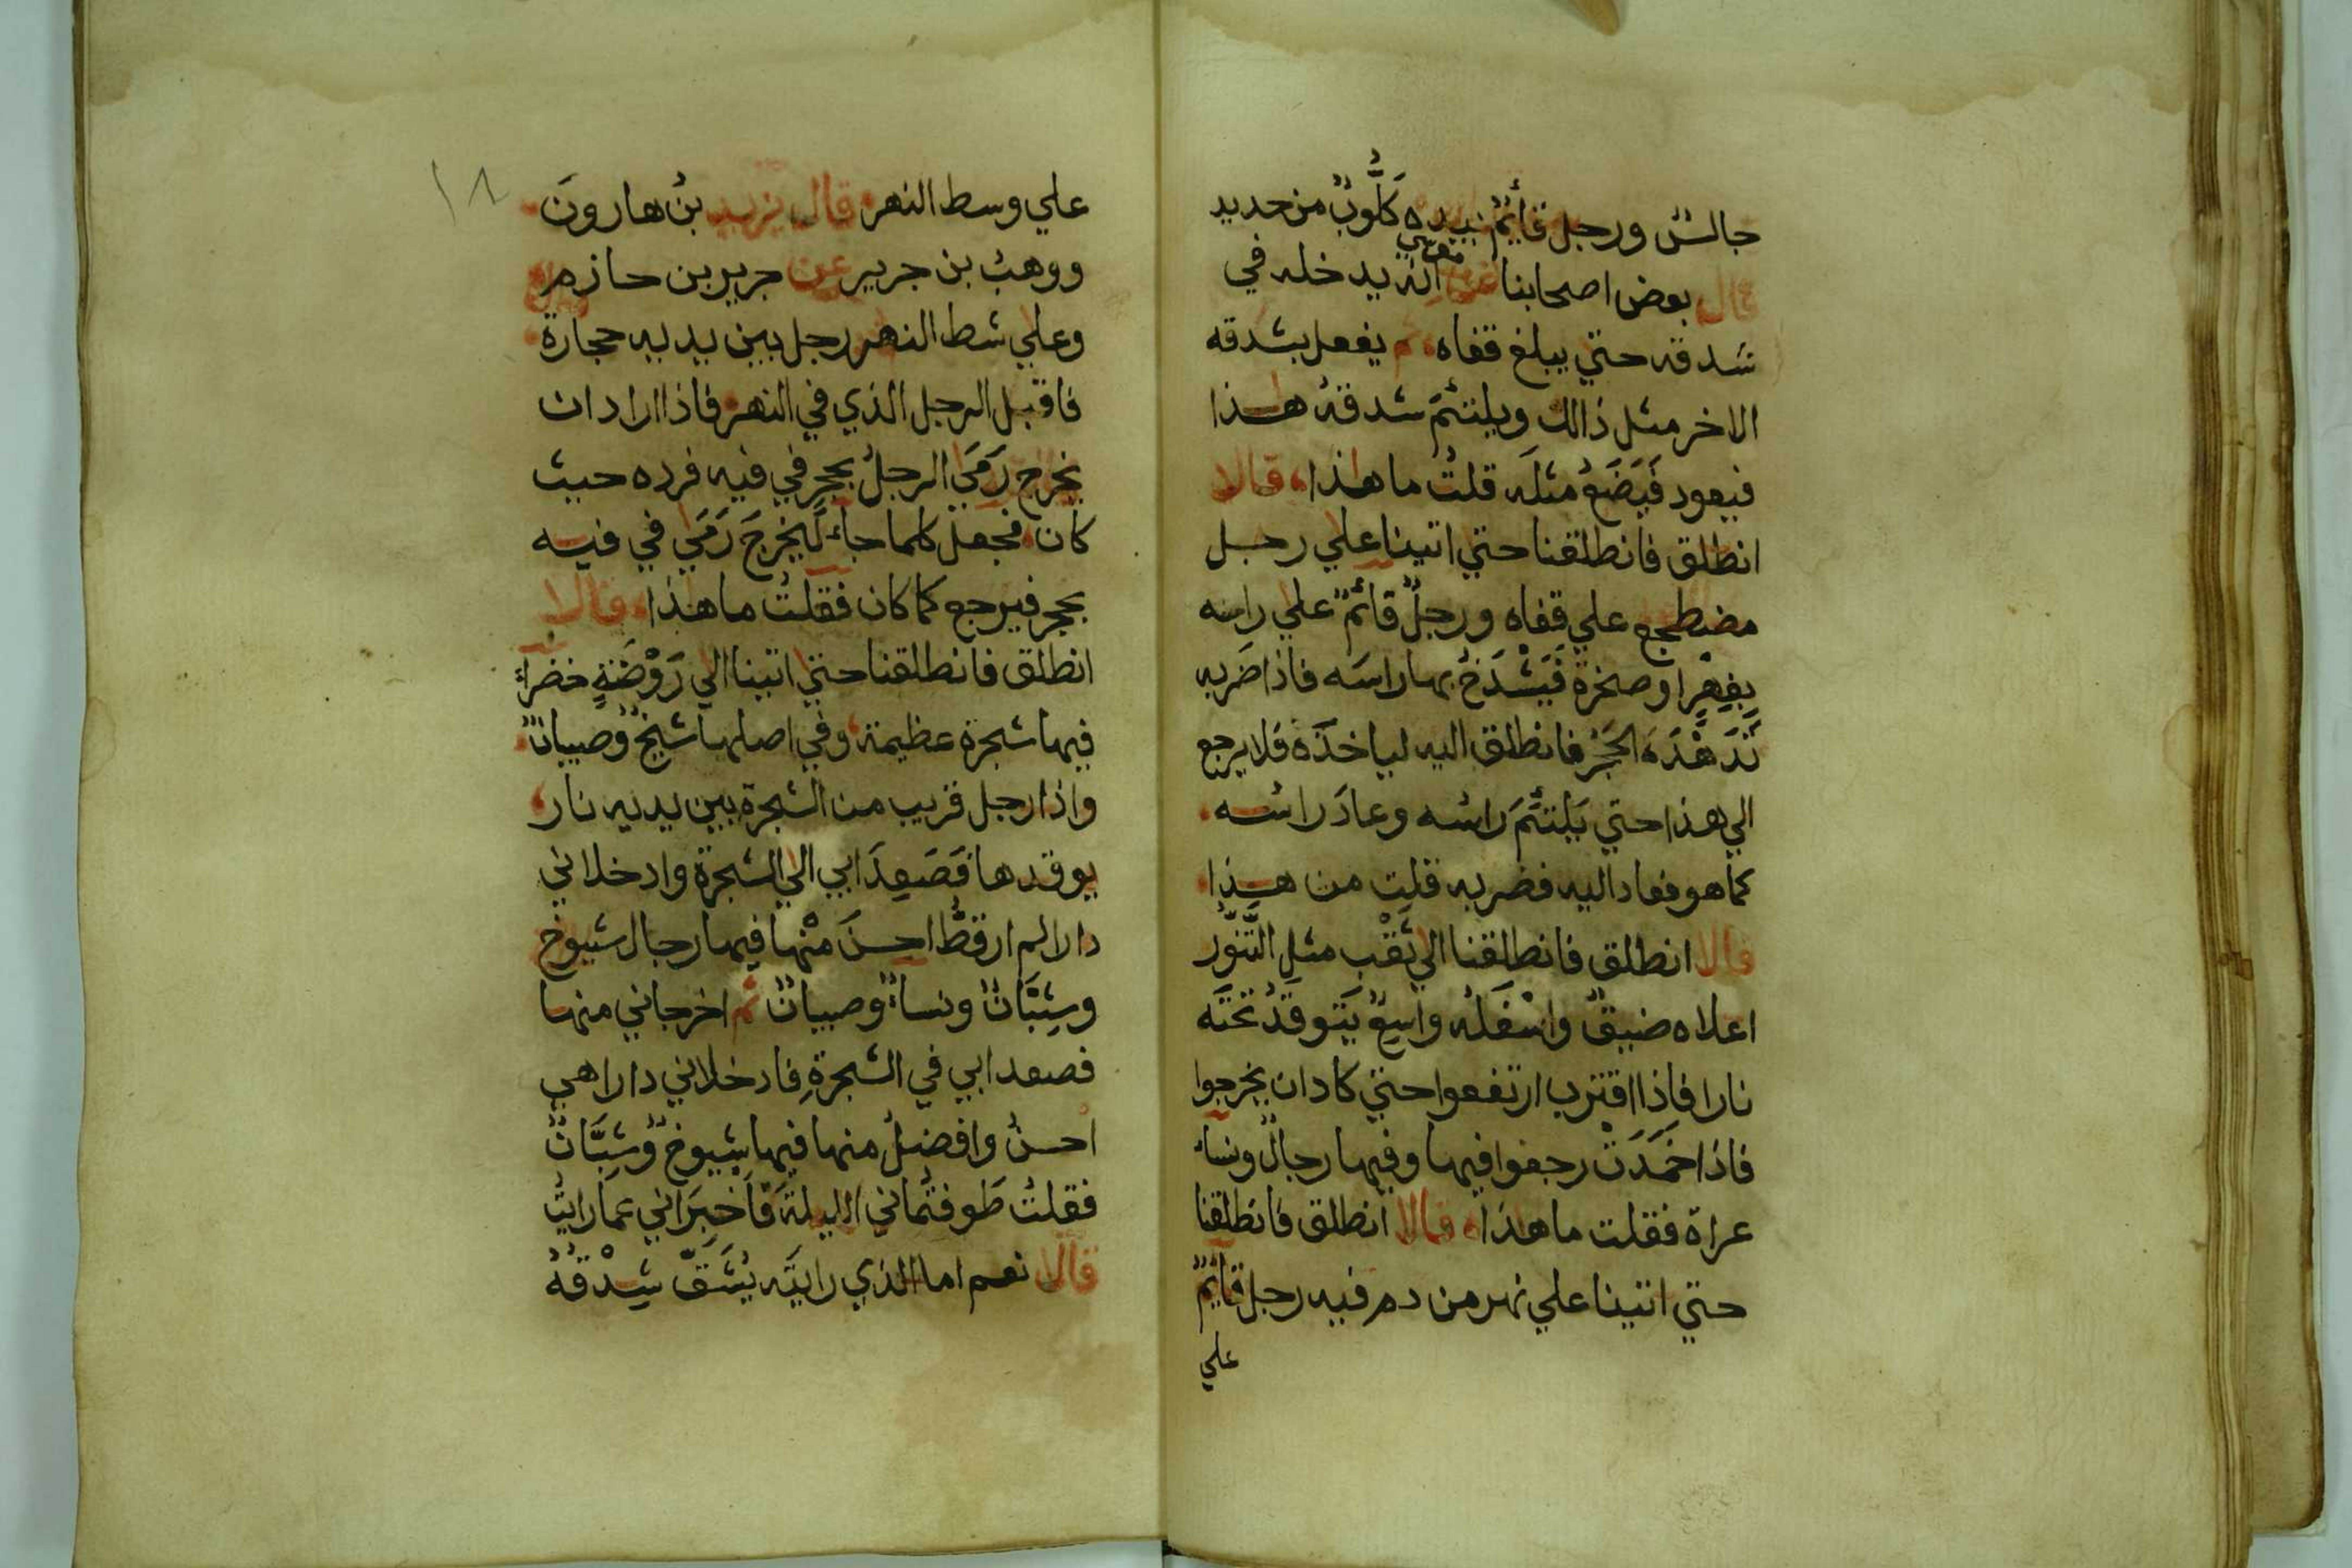 جالسٌ ورجل قائمٌ بيده كَلُّوبٌ من حديد
قال بعض اصحابنا عن موسي انه يدخله في
شدقه حتي يبلغ قفاه ثم يفعل بشدقه
الاخر مثل ذالك ويلتئمَ شدقهُ هذا
فيعود فَيَضَعُ مثلَه قلتُ ما هذا قالا
انطلق فانطلقنا حتي اتينا علي رجل
مضطجع علي قفاه ورجلٌ قائمٌ علي راسه
بِفِهْرٍ او صخرة فَيَشْدَخُ بها راسَه فاذا ضربه
تَدَهْدَهَ الحَجَرُ فانطلق اليه لياخذَه فلا يرجع
الي هذا حتي يَلتئمَ راسُه وعادَ راسُه
كما هو فعاد اليه فضربه قلت من هذا
قالا انطلق فانطلقنا الي ثَقْبٍ مثلِ التَّنُّور
اعلاه ضيقٌ واسْفَلُه واسِعٌ يَتَوقدُ تحتَه
نارا فاذا اقترب ارتفعوا حتي كاد ان يخرجوا
فاذا خَمَدَتْ رجعوا فيها وفيها رجالٌ ونساء
عراة فقلت ما هذا قالا انطلق فانطلقنا
حتي اتينا علي نهر من دم فيه رجل قائمٌ
علي
١٨
علي وسط النهر قال يزيد بنُ هارونَ
ووهبُ بن جرير عن جرير بن حازم
وعلي شط النهر رجل بين يديه حجارة
فاقبل الرجل الذي في النهر فاذا اراد ان
يخرج رَمَي الرجلُ بحجر في فيه فرده حيث
كان فجعل كلما جاء لِيَخرجَ رَمَي في فيه
بحجر فيرجع كما كان فقلتُ ما هذا قالا
انطلق فانطلقنا حتي اتينا الي رَوْضَةٍ خضراءَ
فيها شجرة عظيمة وفي اصلها شيخٌ وصبيانٌ
واذا رجل قريب من الشجرة بين يديه نار
يوقدها فَصَعِدَا بي الي الشجرة وادخلاني
دارا لم ار قطُّ احسنَ مِنْها فيها رجال شيوخ
وشَبَّانٌ ونساءٌ وصبيانٌ ثم اخرجاني منها
فصعدا بي في الشجرةِ فادخلاني دارا هي
احسنُ وافضلُ منها فيها شيوخٌ وشَبَّانٌ
فقلتُ طَوفتُماني الليلةَ فَاَخبِرَاني عما رايتُ
قالا نعم اما الذي رايتَه يُشَقُّ شِدْقُهُ